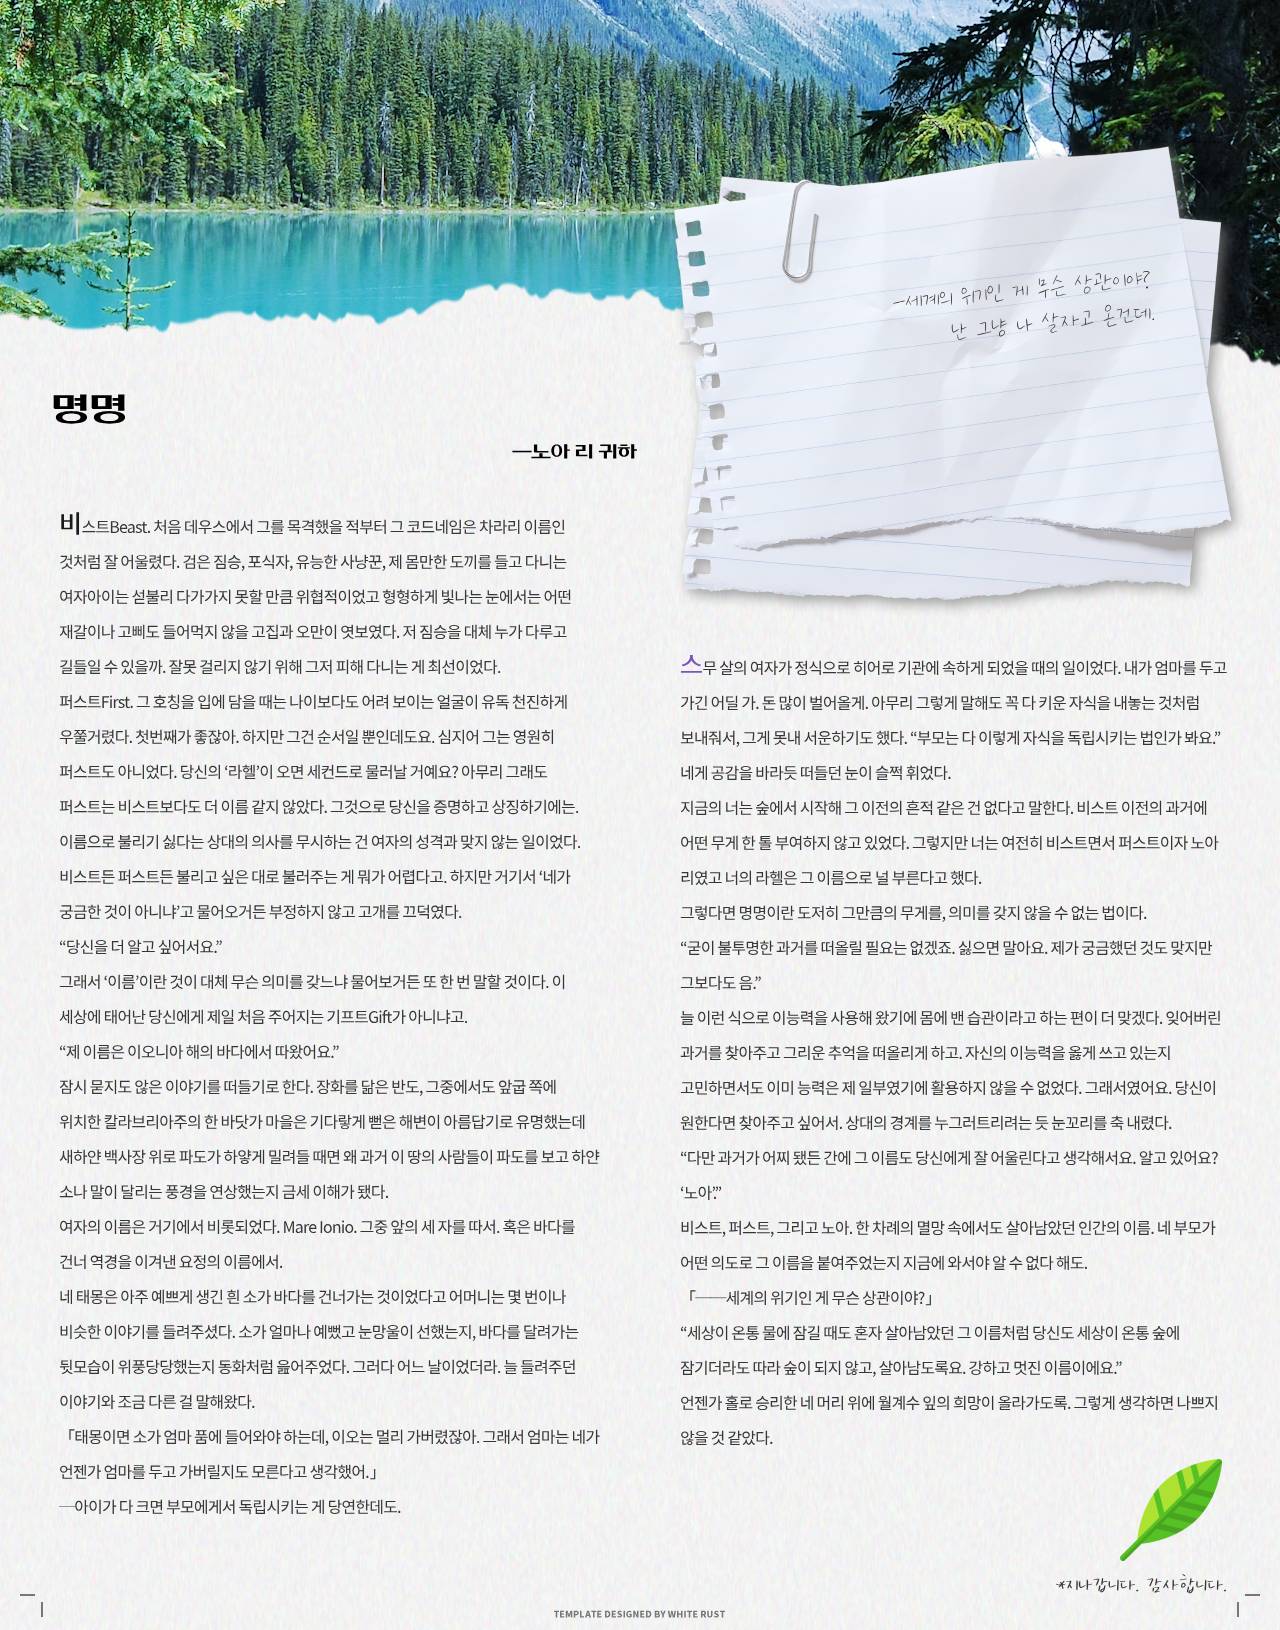 —세계의 위기인 게 무슨 상관이야?
난 그냥 나 살자고 온건데.
명명
—노아 리 귀하
비스트Beast. 처음 데우스에서 그를 목격했을 적부터 그 코드네임은 차라리 이름인
것처럼 잘 어울렸다. 검은 짐승, 포식자, 유능한 사냥꾼, 제 몸만한 도끼를 들고 다니는
여자아이는 섣불리 다가가지 못할 만큼 위협적이었고 형형하게 빛나는 눈에서는 어떤
재갈이나 고삐도 들어먹지 않을 고집과 오만이 엿보였다. 저 짐승을 대체 누가 다루고
길들일 수 있을까. 잘못 걸리지 않기 위해 그저 피해 다니는 게 최선이었다.
퍼스트First. 그 호칭을 입에 담을 때는 나이보다도 어려 보이는 얼굴이 유독 천진하게
우쭐거렸다. 첫번째가 좋잖아. 하지만 그건 순서일 뿐인데도요. 심지어 그는 영원히
퍼스트도 아니었다. 당신의 ‘라헬’이 오면 세컨드로 물러날 거예요? 아무리 그래도
퍼스트는 비스트보다도 더 이름 같지 않았다. 그것으로 당신을 증명하고 상징하기에는.
이름으로 불리기 싫다는 상대의 의사를 무시하는 건 여자의 성격과 맞지 않는 일이었다.
비스트든 퍼스트든 불리고 싶은 대로 불러주는 게 뭐가 어렵다고. 하지만 거기서 ‘네가
궁금한 것이 아니냐’고 물어오거든 부정하지 않고 고개를 끄덕였다.
“당신을 더 알고 싶어서요.”
그래서 ‘이름’이란 것이 대체 무슨 의미를 갖느냐 물어보거든 또 한 번 말할 것이다. 이
세상에 태어난 당신에게 제일 처음 주어지는 기프트Gift가 아니냐고.
“제 이름은 이오니아 해의 바다에서 따왔어요.”
잠시 묻지도 않은 이야기를 떠들기로 한다. 장화를 닮은 반도, 그중에서도 앞굽 쪽에
위치한 칼라브리아주의 한 바닷가 마을은 기다랗게 뻗은 해변이 아름답기로 유명했는데
새하얀 백사장 위로 파도가 하얗게 밀려들 때면 왜 과거 이 땅의 사람들이 파도를 보고 하얀
소나 말이 달리는 풍경을 연상했는지 금세 이해가 됐다.
여자의 이름은 거기에서 비롯되었다. Mare Ionio. 그중 앞의 세 자를 따서. 혹은 바다를
건너 역경을 이겨낸 요정의 이름에서.
네 태몽은 아주 예쁘게 생긴 흰 소가 바다를 건너가는 것이었다고 어머니는 몇 번이나
비슷한 이야기를 들려주셨다. 소가 얼마나 예뻤고 눈망울이 선했는지, 바다를 달려가는
뒷모습이 위풍당당했는지 동화처럼 읊어주었다. 그러다 어느 날이었더라. 늘 들려주던
이야기와 조금 다른 걸 말해왔다.
「태몽이면 소가 엄마 품에 들어와야 하는데, 이오는 멀리 가버렸잖아. 그래서 엄마는 네가
언젠가 엄마를 두고 가버릴지도 모른다고 생각했어.」
─아이가 다 크면 부모에게서 독립시키는 게 당연한데도.
스무 살의 여자가 정식으로 히어로 기관에 속하게 되었을 때의 일이었다. 내가 엄마를 두고
가긴 어딜 가. 돈 많이 벌어올게. 아무리 그렇게 말해도 꼭 다 키운 자식을 내놓는 것처럼
보내줘서, 그게 못내 서운하기도 했다. “부모는 다 이렇게 자식을 독립시키는 법인가 봐요.”
네게 공감을 바라듯 떠들던 눈이 슬쩍 휘었다.
지금의 너는 숲에서 시작해 그 이전의 흔적 같은 건 없다고 말한다. 비스트 이전의 과거에
어떤 무게 한 톨 부여하지 않고 있었다. 그렇지만 너는 여전히 비스트면서 퍼스트이자 노아
리였고 너의 라헬은 그 이름으로 널 부른다고 했다.
그렇다면 명명이란 도저히 그만큼의 무게를, 의미를 갖지 않을 수 없는 법이다.
“굳이 불투명한 과거를 떠올릴 필요는 없겠죠. 싫으면 말아요. 제가 궁금했던 것도 맞지만
그보다도 음.”
늘 이런 식으로 이능력을 사용해 왔기에 몸에 밴 습관이라고 하는 편이 더 맞겠다. 잊어버린
과거를 찾아주고 그리운 추억을 떠올리게 하고. 자신의 이능력을 옳게 쓰고 있는지
고민하면서도 이미 능력은 제 일부였기에 활용하지 않을 수 없었다. 그래서였어요. 당신이
원한다면 찾아주고 싶어서. 상대의 경계를 누그러트리려는 듯 눈꼬리를 축 내렸다.
“다만 과거가 어찌 됐든 간에 그 이름도 당신에게 잘 어울린다고 생각해서요. 알고 있어요?
‘노아’.”
비스트, 퍼스트, 그리고 노아. 한 차례의 멸망 속에서도 살아남았던 인간의 이름. 네 부모가
어떤 의도로 그 이름을 붙여주었는지 지금에 와서야 알 수 없다 해도.
「──세계의 위기인 게 무슨 상관이야?」
“세상이 온통 물에 잠길 때도 혼자 살아남았던 그 이름처럼 당신도 세상이 온통 숲에
잠기더라도 따라 숲이 되지 않고, 살아남도록요. 강하고 멋진 이름이에요.”
언젠가 홀로 승리한 네 머리 위에 월계수 잎의 희망이 올라가도록. 그렇게 생각하면 나쁘지
않을 것 같았다.
*지나갑니다. 감사합니다.
TEMPLATE DESIGNED BY WHITE RUST